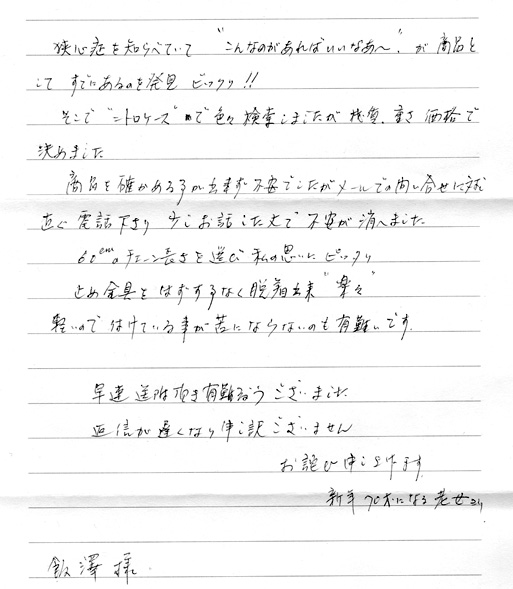 狭心症を知らべていて "こんなのがあればいいなあ〜"が 商品と
して すでにあるのを発見 ビックリ!!
そこで "ニトロケース"で色々検索しましたが 材質、重さ 価格で
決めました
商品を確かめる事が出来ず 不安でしたがメールでの問い合せに対
直ぐ 電話下さり 少しお話した丈で 不安が消へました
60cmのチェーン長さを選び 私の思いに ピッタリ
止め金具をはずす事なく脱着出来 "楽々"
軽いので 付けている事が苦にならないのも有難いです。
早速 送附頂き有難うございました
返信が遅くなり申し訳ございません
お詫び申し上げます
新年 70才になる 老女より
飯澤様.